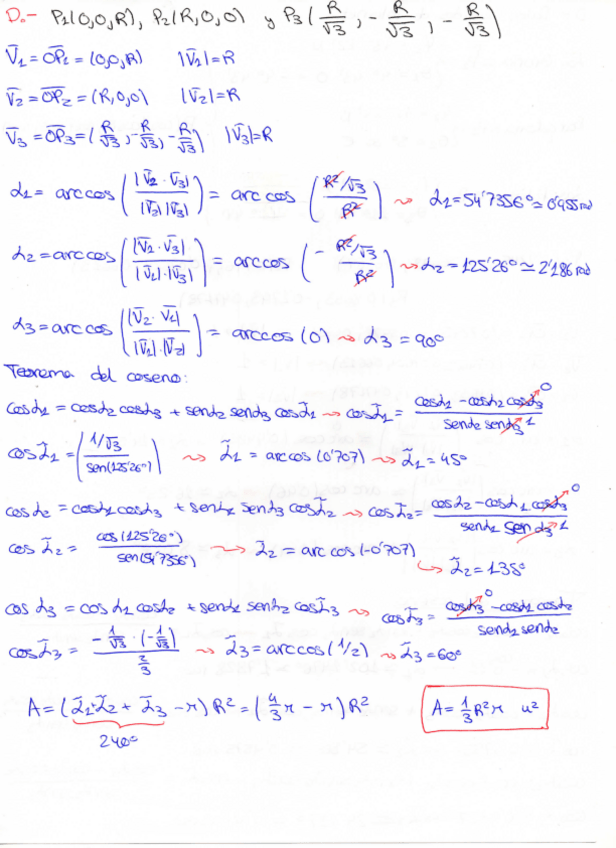 D.- P1(0,0,R), P2(R,0,0) y P3(R/√3, -R/√3, -R/√3)
V̄1 = OP1 = (0,0,R) |V̄1|=R
V̄2 = OP2 = (R,0,0) |V̄2|=R
V̄3 = OP3 = (R/√3, -R/√3, -R/√3) |V̄3|=R
α1 = arccos (|V̄2·V̄3| / |V̄2||V̄3|) = arccos (R²/√3 / R²) ⇝ α1=54'7356° ≃ 0'955 rad
α2 = arccos (|V̄1·V̄3| / |V̄1|·|V̄3|) = arccos (- R²/√3 / R²) ⇝ α2 = 125'26° ≃ 2'186 rad
α3 = arccos (|V̄2·V̄1| / |V̄1|·|V̄2|) = arccos (0) ⇝ α3 = 90°
Teorema del coseno:
cosα1 = cosα2 cosα3 + senα2 senα3 cosα̃1 ⇝ cosα̃1 = (cosα1 - cosα2 cosα3 0) / (senα2 senα3 1)
cosα̃1 = (1/√3 / sen(125'26°)) ⇝ α̃1 = arccos (0'707) ⇝ α̃1 = 45°
cosα2 = cosα1 cosα3 + senα1 senα3 cosα̃2 ⇝ cosα̃2 = (cosα2 - cosα1 cosα3 0) / (senα1 senα3 1)
cosα̃2 = cos(125'26°) / sen(54'7356°) ⇝ α̃2 = arccos (-0'707)
⇝ α̃2 = 135°
cosα3 = cosα1 cosα2 + senα1 senα2 cosα̃3 ⇝ cosα̃3 = (cosα3 0 - cosα1 cosα2) / (senα1 senα2)
cosα̃3 = (-1/√3 · (-1/√3)) / (2/3) ⇝ α̃3 = arccos (1/2) ⇝ α̃3 = 60°
A = (α̃1+α̃2 + α̃3 - π) R² = (4/3 π - π) R² A = 1/3 R² π u²
240°